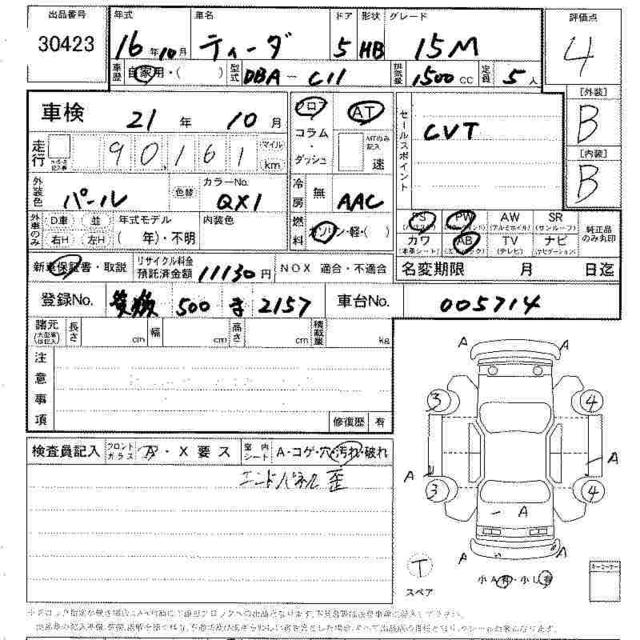 出品番号 年式 車名 ドア 形状 グレード 評価点
30423 16年10月 ティーダ 5 HB 15M 4
車歴 自家用・( ) 型式 DBA-C11 排気量 1500cc 定員 5人
[外装]
B
[内装]
B
車検 21年 10月 フロア AT セールスポイント
CVT
走行 90,161 マイル km コラム・ダッシュ 速
外装色 パール 色替 カラーNo. QX1 冷房 無 AAC
外車のみ D車 並 年式モデル 内装色 燃料 ガソリン・軽・( )
右H 左H ( 年)・不明
PS PW AW (アルミホイル) SR (サンルーフ) 純正品のみ丸印
カワ (本革シート) AB TV (テレビ) ナビ (ナビゲーション)
新車保証書・取説 リサイクル料金預託済金額 11130円 NOX 適合・不適合 名変期限 月 日迄
登録No. 500 き 2157 車台No. 005714
諸元 長さ cm 幅 cm 高さ cm 積載量 kg
注意事項
修復歴 有
検査員記入 フロントガラス A・X要ス 室内シート A・コゲ・穴・汚れ・破れ
エンドパネル歪
A A
3 4
A A
3 4
A
A A
T
スペア
小A有・小U有
コーナーコーナー